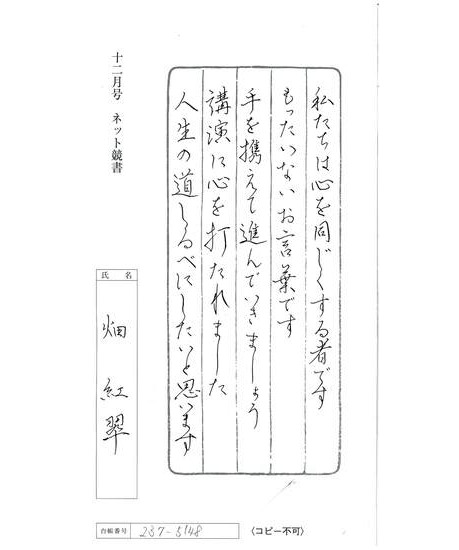 私たちは心を同じくする者です
もったいないお言葉です
手を携えて進んでいきましょう
講演に心を打たれました
人生の道しるべにしたいと思います
十二月号 ネット競書
氏名
畑 紅翠
台帳番号 237-5148
〈コピー不可〉